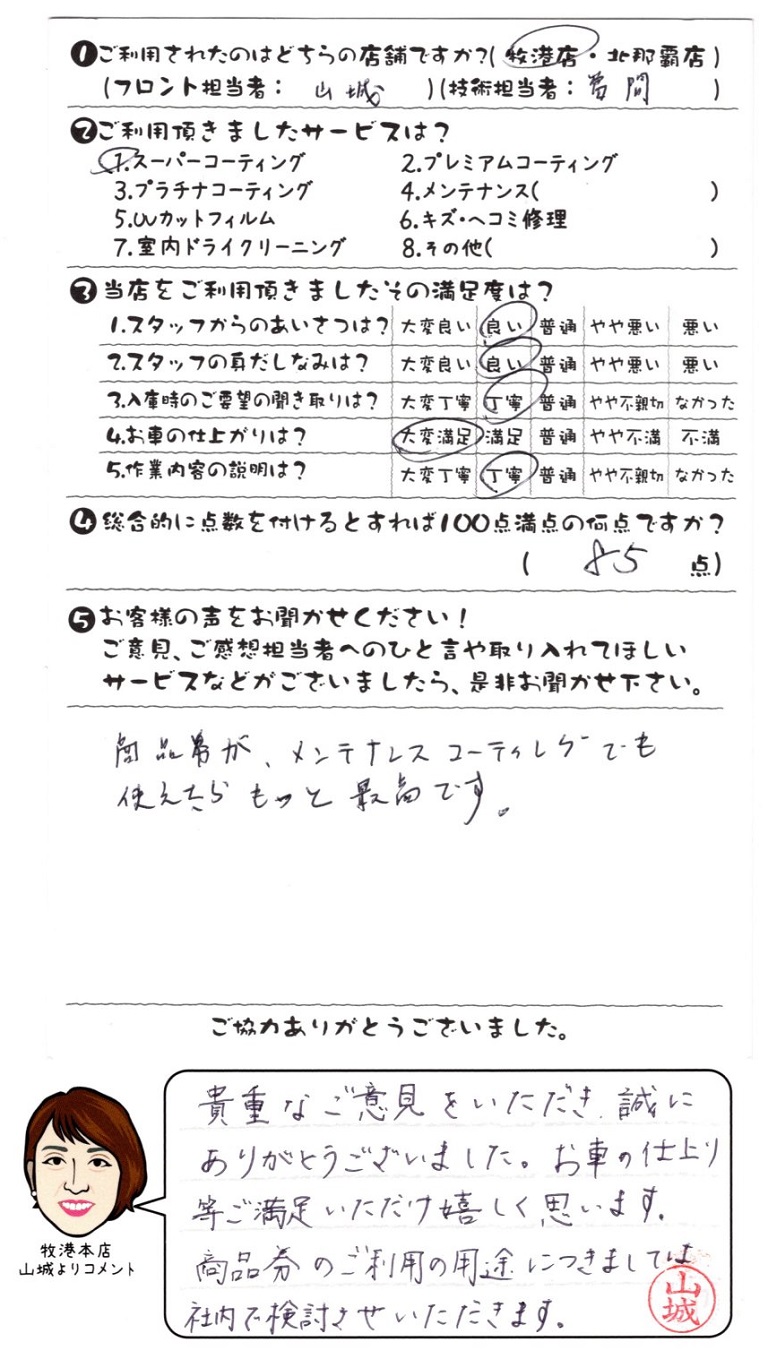 ❶ご利用されたのはどちらの店舗ですか?(牧港店・北那覇店)
(フロント担当者: 山城 )(技術担当者: 當間 )
❷ご利用頂きましたサービスは?
1.スーパーコーティング 2.プレミアムコーティング
3.プラチナコーティング 4.メンテナンス( )
5.UVカットフィルム 6.キズ・ヘコミ修理
7.室内ドライクリーニング 8.その他( )
❸当店をご利用頂きましたその満足度は?
1.スタッフからのあいさつは? 大変良い 良い 普通 やや悪い 悪い
2.スタッフの身だしなみは? 大変良い 良い 普通 やや悪い 悪い
3.入庫時のご要望の聞き取りは? 大変丁寧 丁寧 普通 やや不親切 なかった
4.お車の仕上がりは? 大変満足 満足 普通 やや不満 不満
5.作業内容の説明は? 大変丁寧 丁寧 普通 やや不親切 なかった
❹総合的に点数を付けるとすれば100点満点の何点ですか?
( 85 点)
❺お客様の声をお聞かせください!
ご意見、ご感想担当者へのひと言や取り入れてほしい
サービスなどがございましたら、是非お聞かせ下さい。
商品券が、メンテナンスコーティングでも
使えたらもっと最高です。
ご協力ありがとうございました。
貴重なご意見をいただき、誠に
ありがとうございました。お車の仕上り
等ご満足いただけ嬉しく思います。
商品券のご利用の用途につきましては
社内で検討させいただきます。
山城
牧港本店
山城よりコメント